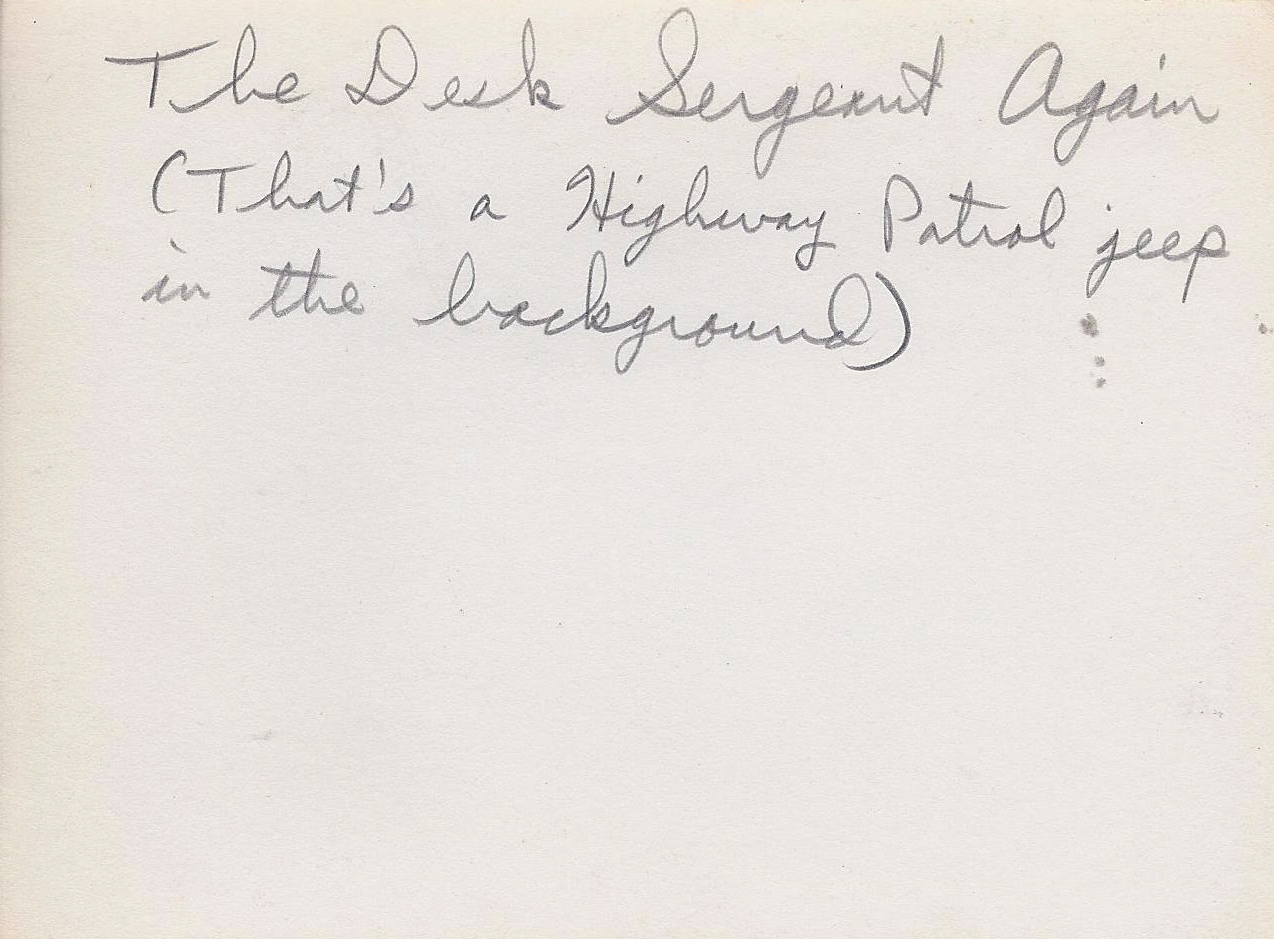 The Desk Sergeant Again
(That's a Highway Patrol jeep
in the background)